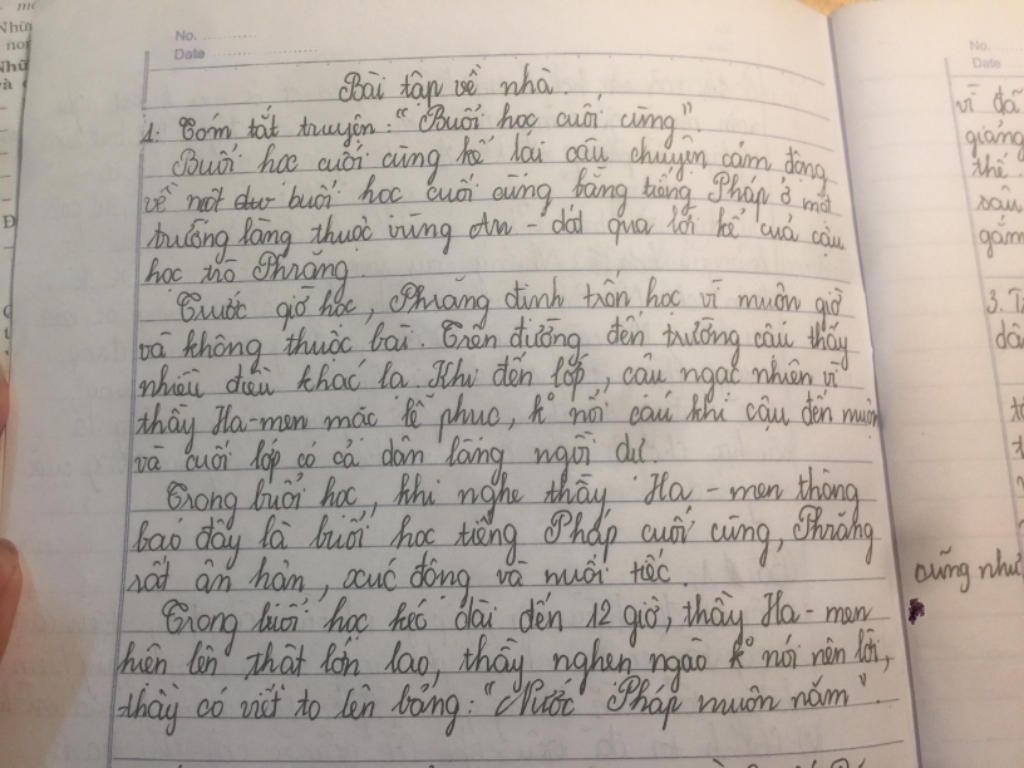 No.
Date
Bài tập về nhà
1. Tóm tắt truyện: "Buổi học cuối cùng".
Buổi học cuối cùng kể lại câu chuyện cảm động
về một buổi học cuối cùng bằng tiếng Pháp ở một
trường làng thuộc vùng An-dát qua lời kể của cậu
học trò Phrăng
Trước giờ học, Phrăng định trốn học vì muộn giờ
và không thuộc bài. Trên đường đến trường cậu thấy
nhiều điều khác lạ. Khi đến lớp, cậu ngạc nhiên vì
thầy Ha-men mặc lễ phục, k° nói cáu khi cậu đến muộn
và cuối lớp có cả dân làng ngồi dự
Trong buổi học, khi nghe thầy Ha-men thông
báo đây là buổi học tiếng Pháp cuối cùng, Phrăng
rất ân hận, xúc động và nuối tiếc.
Trong buổi học kéo dài đến 12 giờ, thầy Ha-men
hiện lên thật lớn lao, thầy nghẹn ngào k° nói nên lời,
thầy cố viết to lên bảng: "Nước Pháp muôn năm".
No.
Date
vì đã
giảng
thế.
sâu
gắm
3.
cũng như